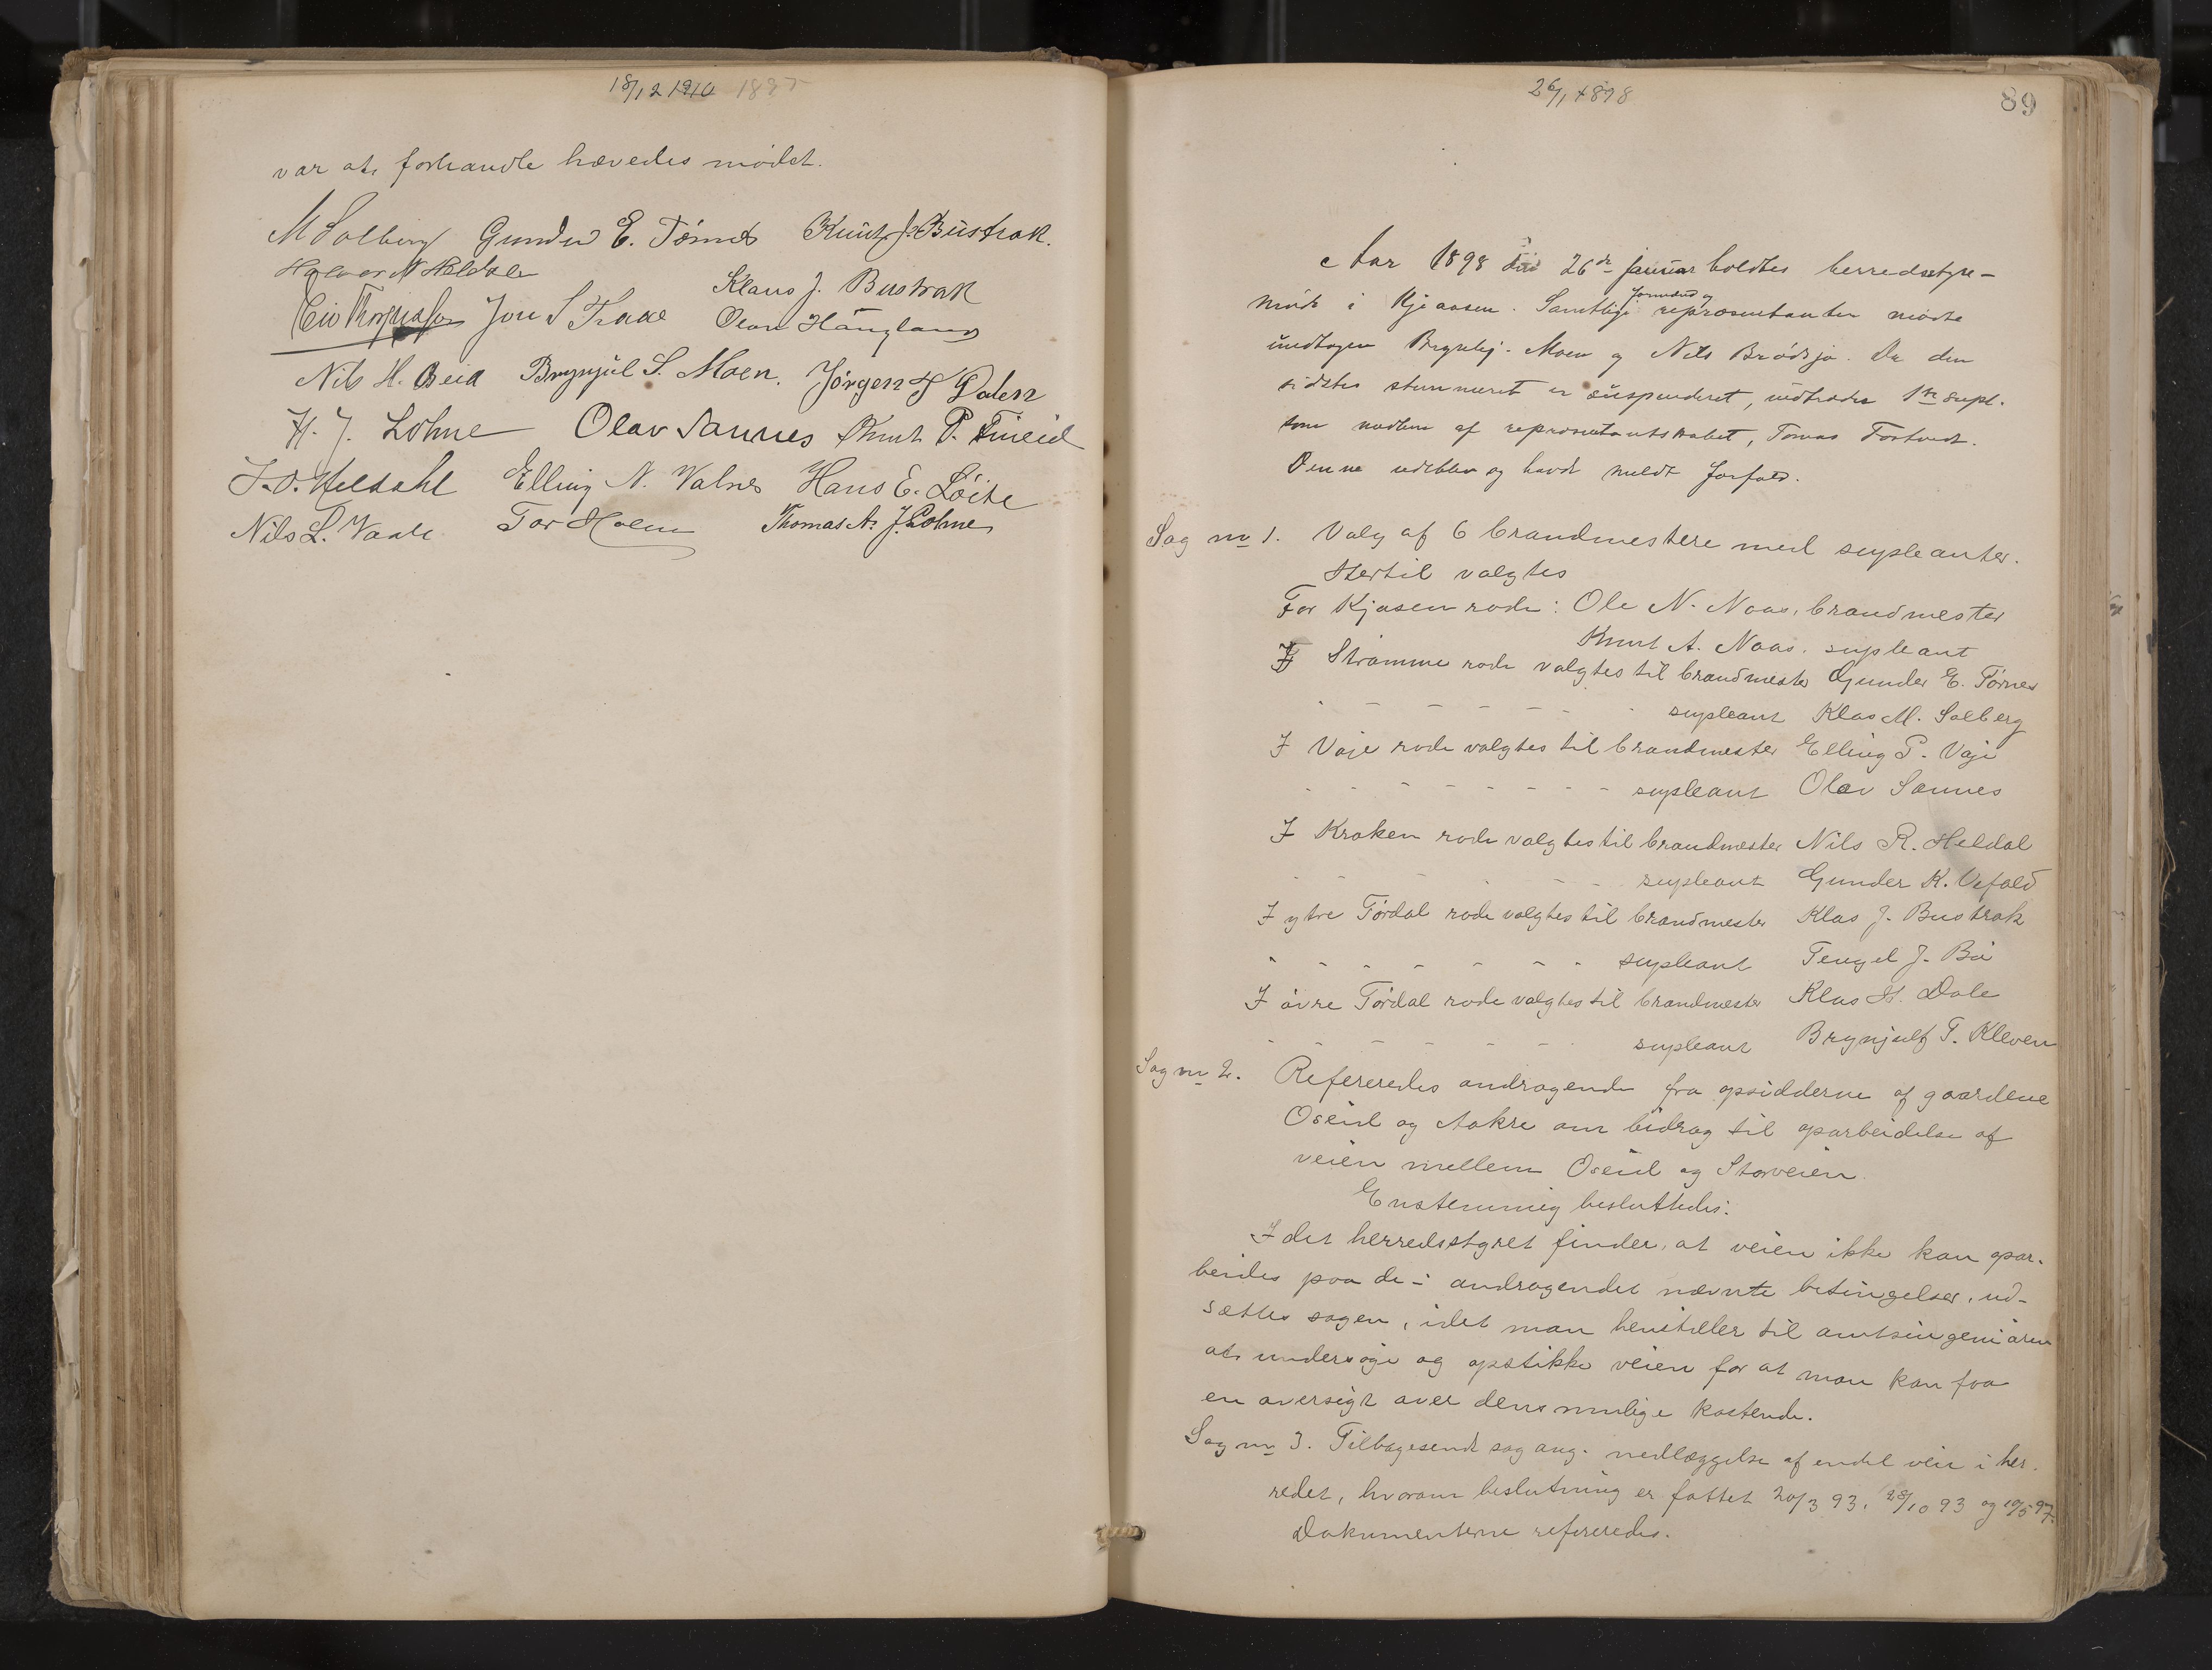 18/12 1910 1897
var at forhandle hævedes mødet.
M Solberg Gunder E. Tørnes Knut J. Bustrak.
Halvor N Heldale
Klaus J. Bustrak
Jon S Trake Olav Haugland
Nils H. Beid Brynjul S. Moen. Jörgen H Dalen
H. J. Lohne Olav Sannes Knut P. Fineid
J. O. Heldahl Elling N. Valnes Hans E. Löite
Nils L. Vaale Tor Holm Thomas A. J. Lohne
26/1 1898
89
Aar 1898 den 26de januar holdtes herredsstyre-
møde i Kjeaasen. Samtlige formænd og repræsentanter mødte
undtagen Brynulf. Moen og Nils Brødsjø. Da den
sidstes stemmeret er suspenderet, indtræder 1ste supl.
som medlem af repræsentantskabet, Tomas Fostvedt.
Denne udeblev og havde meldt forfald.
Sag no 1. Valg af 6 brandmestere med supleanter.
Hertil valgtes
For Kjosen rode: Ole N. Naas, brandmester
Knut A. Naas. supleant
I Strømme rode valgtes til brandmester Gunder E. Tørnes
- - - - - - - supleant Klas M. Solberg
I Voje rode valgtes til brandmester Elling P. Voje
- - - - - - - - supleant Olav Sannes
I Kroken rode valgtes til brandmester Nils R. Heldal
- - - - - - supleant Gunder K. Vefald
I ytre Tørdal rode valgtes til brandmester Klas J. Bustrak
- - - - - - - - supleant Tengel J. Bø
I øvre Tørdal rode valgtes til brandmester Klas H. Dale
- - - - - - - supleant Brynjulf T. Kleven
Sag no 2. Refereredes andragende fra opsidderne af gaardene
Oseid og Aakre om bidrag til oparbeidelse af
veien mellem Oseid og Storveien.
Enstemmig besluttedes:
I det herredsstyret finder, at veien ikke kan opar-
beides paa de i andragendet nævnte betingelser, ud-
sættes sagen, idet man henstiller til amtsingeniøren
at undersøge og opstikke veien for at man kan faa
en oversigt over dens mulige kostende.
Sag no 3. Tilbagesendt sag ang. nedlæggelse af endel veie i her-
redet, hvorom beslutning er fattet 20/3 93, 28/10 93 og 10/5 97.
Dokumenterne refereredes.